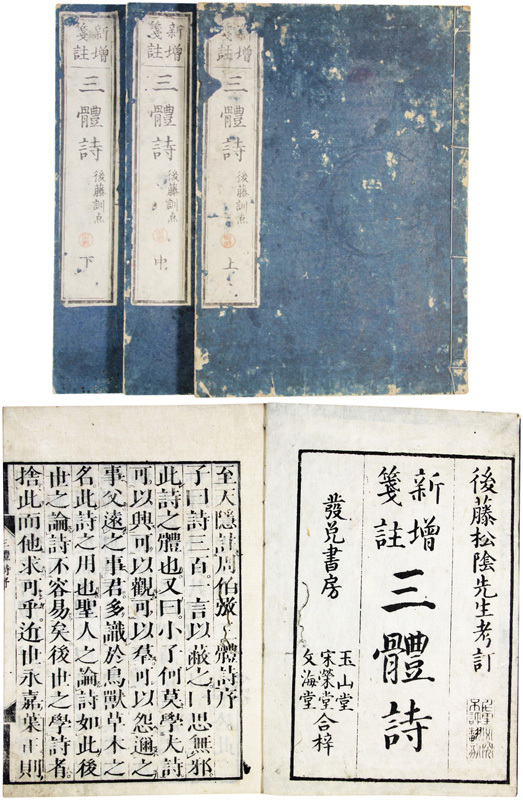 新增
箋註
三體詩
後藤訓点
上
新增
箋註
三體詩
後藤訓点
中
新增
箋註
三體詩
後藤訓点
下
後藤松陰先生考訂
新增
箋註
三體詩
發兌書房
玉山堂
宋榮堂
文海堂
合梓
至天隱註周伯弜三體詩序
子曰詩三百一言以蔽之曰思無邪
此詩之體也又曰小子何莫學夫詩
可以興可以觀可以羣可以怨邇之
事父遠之事君多識於鳥獸草木之
名此詩之用也聖人之論詩如此後
世之論詩不容易矣後世之學詩者
捨此而他求可乎近世永嘉葉正則